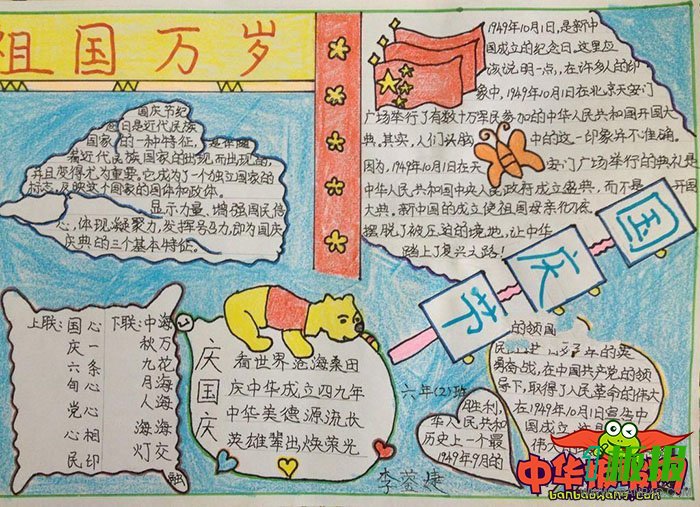 祖国万岁
国庆节纪
念日是近代民族
国家的一种特征,是伴随
着近代民族国家的出现而出现的,
并且变得尤为重要。它成为了一个独立国家的
标志,反映这个国家的国体和政体。
显示力量、增强国民信
心,体现凝聚力,发挥号召力,即为国庆
庆典的三个基本特征。
1949年10月1日,是新中
国成立的纪念日,这里应
该说明一点,,在许多人的印
象中,1949年10月1日在北京天安门
广场举行了有数十万军民参加的中华人民共和国开国大
典。其实,人们头脑中的这一印象并不准确。
因为,1949年10月1日在天安门广场举行的典礼是
中华人民共和国中央人民政府成立盛典,而不是开国
大典。新中国的成立使祖国母亲彻底
摆脱了被压迫的境地,让中华
踏上了复兴之路!
国庆节
上联:国庆六旬党心民心一条心心相印
下联:中秋九月人海灯海万花海海交融
国庆国庆
看世界沧海桑田
庆中华成立四九年
中华美德源流长
英雄辈出焕荣光
六年(2)班
李蓉婕
胜利,
华人民共和
历史上一个最
1949年9月的
的领国
勇奋战,在中国共产党的领
导下,取得了人民革命的伟大
在1949年10月1日宣告中
国成立,这
伟大
banbaowang.com